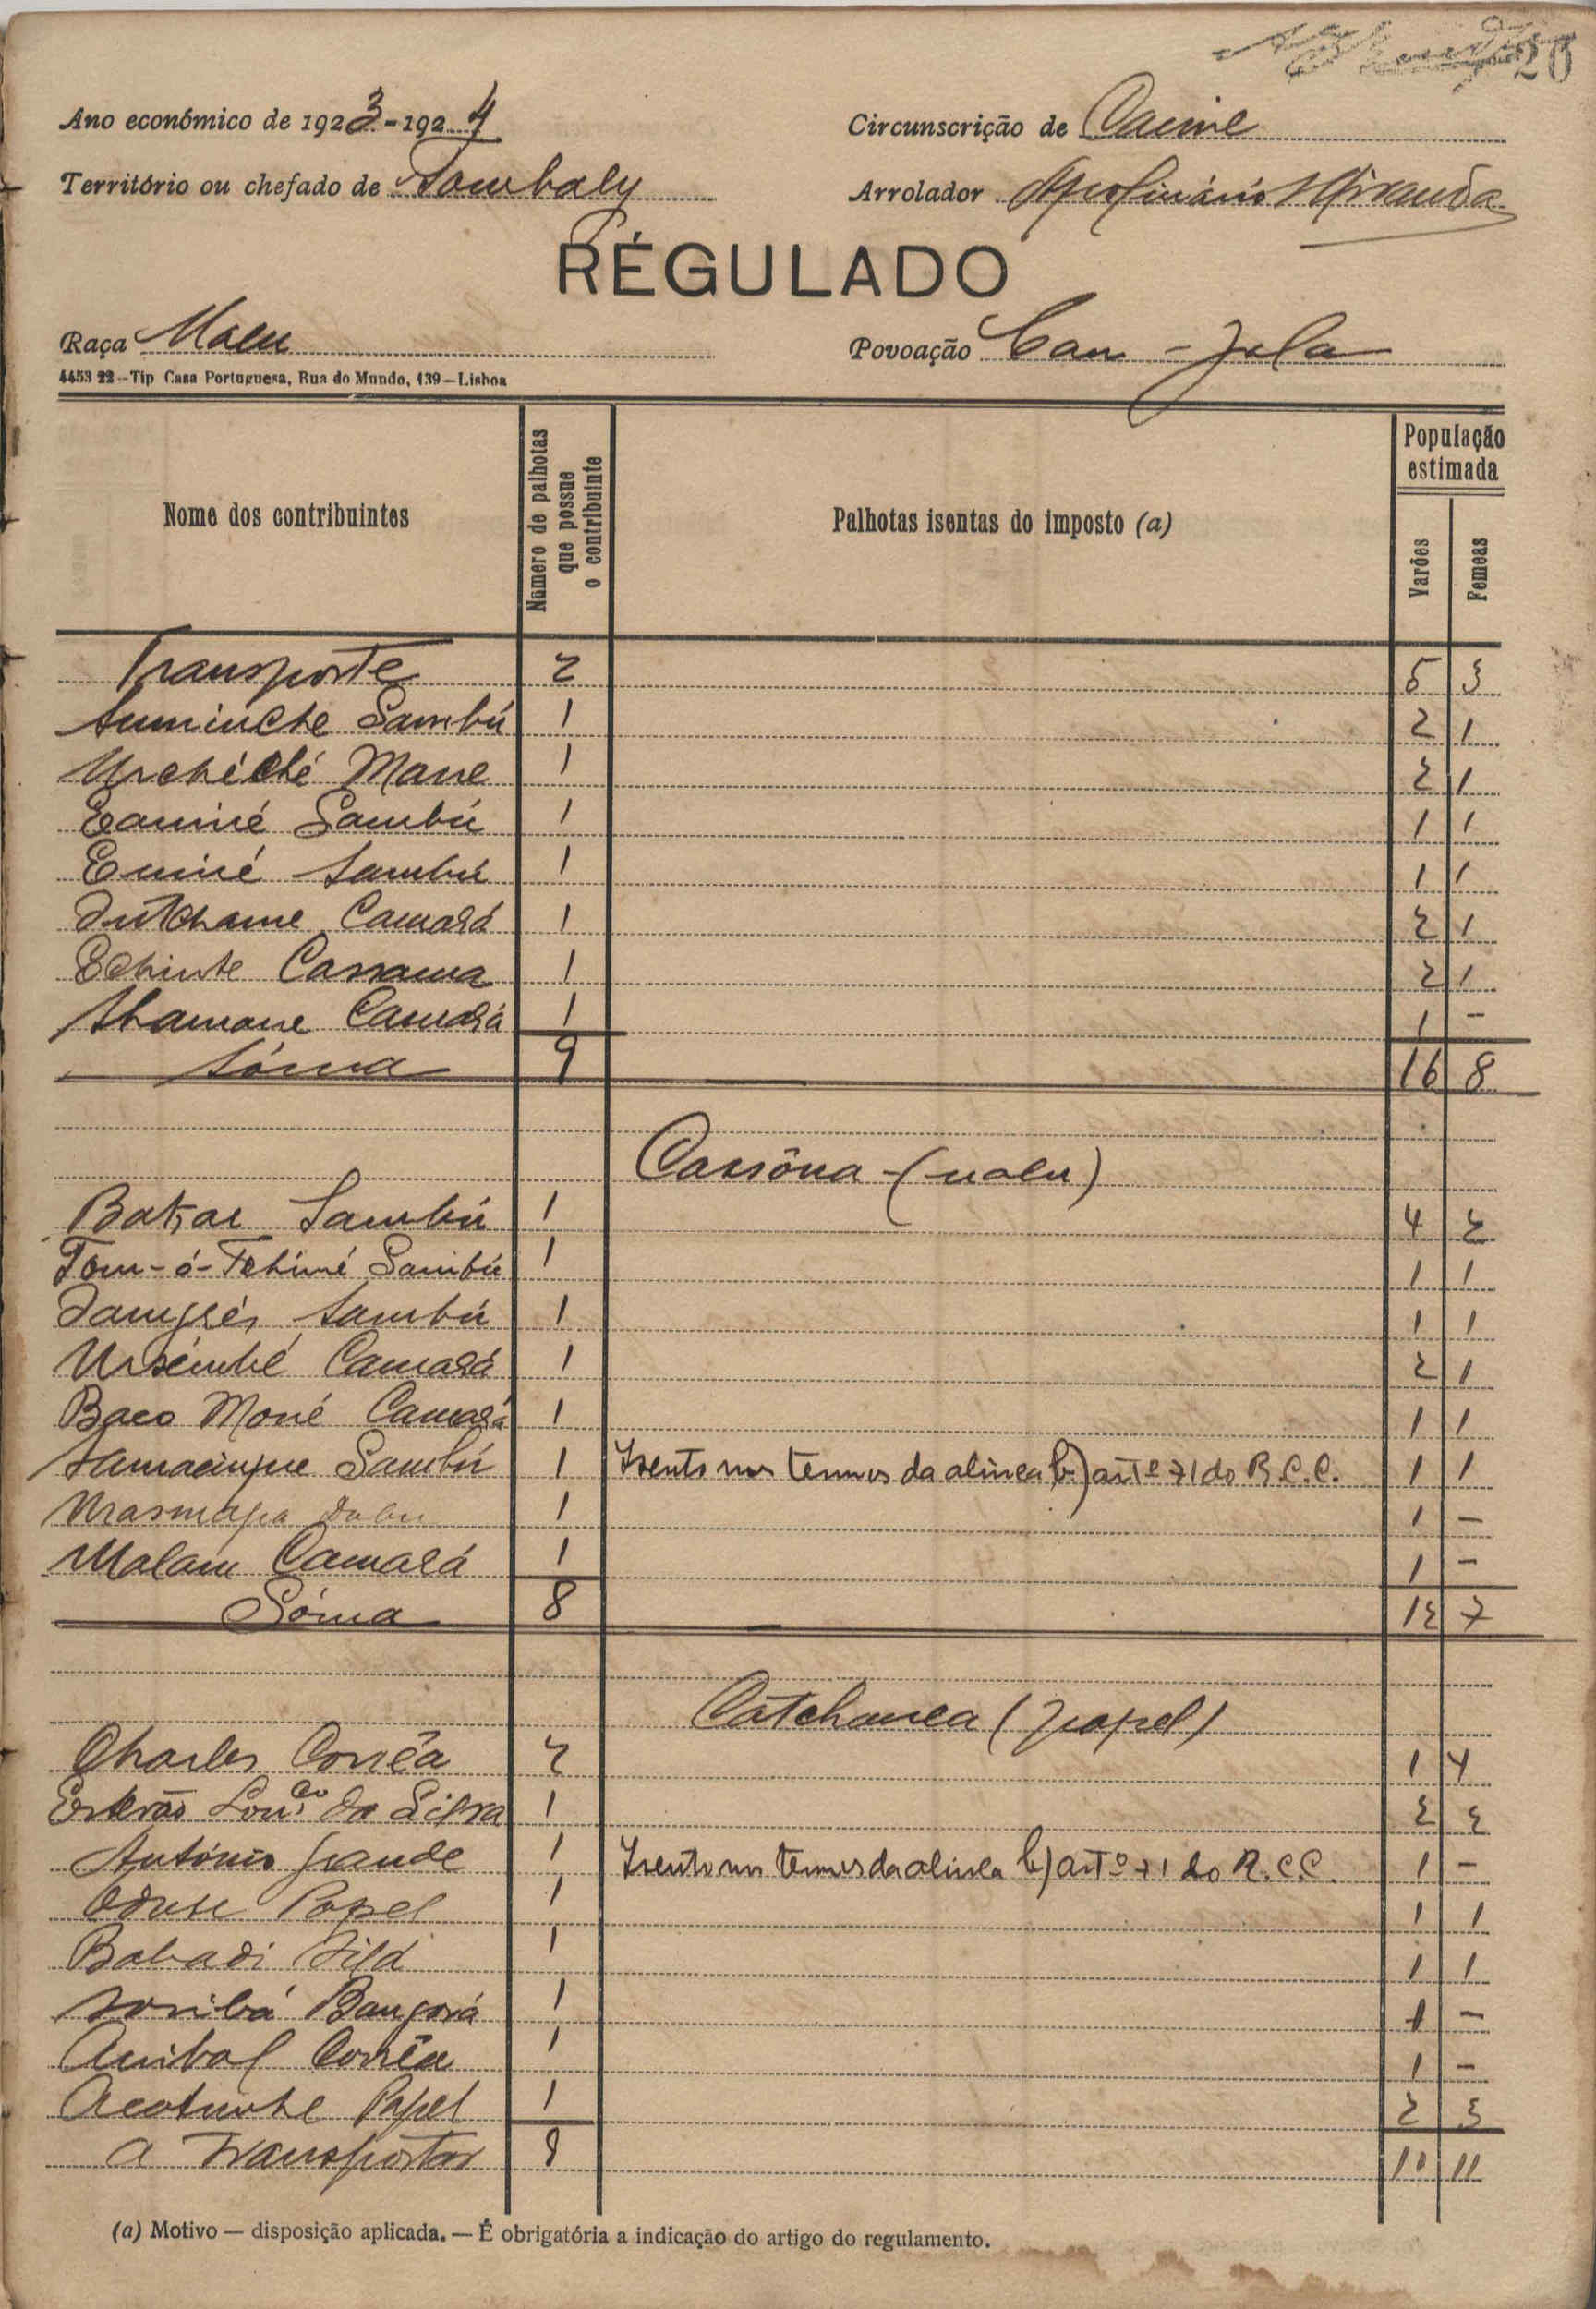 20
Ano económico de 1923-1924 Circunscrição de Cacine
Território ou chefado de Tombaly Arrolador Apolinário Miranda
RÉGULADO
Raça Nalu Povoação Can-
4453 22-Tip Casa Portuguesa, Rua do Mundo, 139-Lisboa
Nome dos contribuintes Numero de palhotas que possue o contribuinte Palhotas isentas do imposto (a) População estimada Varões Femeas
Transporte 2 5 3
Suminche Sambú 1 2 1
Mane 1 2 1
Sambú 1 1 1
Sambú 1 1 1
Camará 1 2 1
Echinte Cassama 1 2 1
Camará 1 1 -
Sôma 9 16 8
Cassôna - (nalu)
Bakar Sambú 1 4 2
Tom-ó-Tchimé Sambú 1 1 1
Sambú 1 1 1
Camará 1 2 1
Baco Moné Camará 1 1 1
Sambú 1 Isento nos termos da alinea b) artº 71 do R.C.C. 1 1
1 1 -
Malam Camará 1 1 -
Sôma 8 12 7
(papel)
Charles Corrêa 2 1 4
Estevão Lourco da Silva 1 2 2
António Grande 1 Isento nos termos da alinea b) artº 71 do R.C.C. 1 -
Papel 1 1 1
Babadi 1 1 1
Soribá Bangorá 1 1 -
Anibal Corrêa 1 1 -
Papel 1 2 3
A Transportar 9 11 11
(a) Motivo — disposição aplicada. — É obrigatória a indicação do artigo do regulamento.